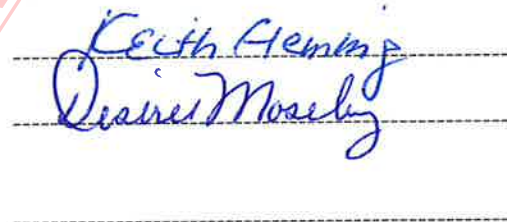 Keith Fleming
Desiree Moseley